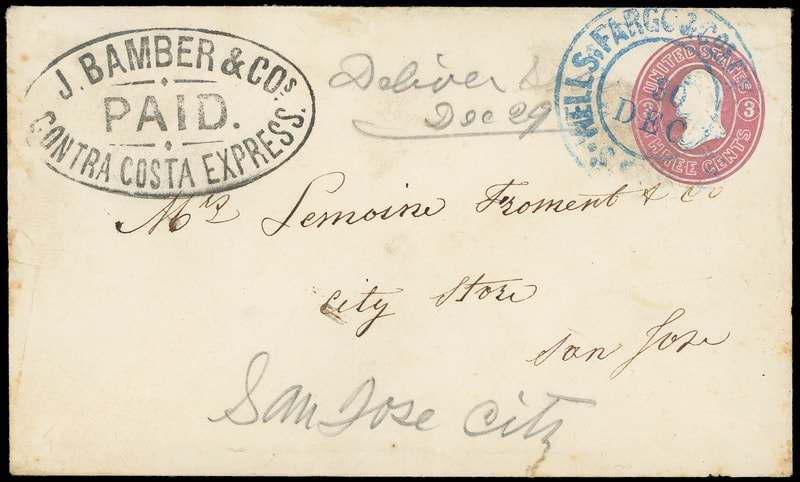 J. BAMBER & COS.
PAID.
CONTRA COSTA EXPRESS.
Deliver
Dec 29
WELLS, FARGO & CO
DEC
UNITED STATES
3 3
THREE CENTS
Mrs Lemoine Froment & Co
City Store
San Jose
San Jose City